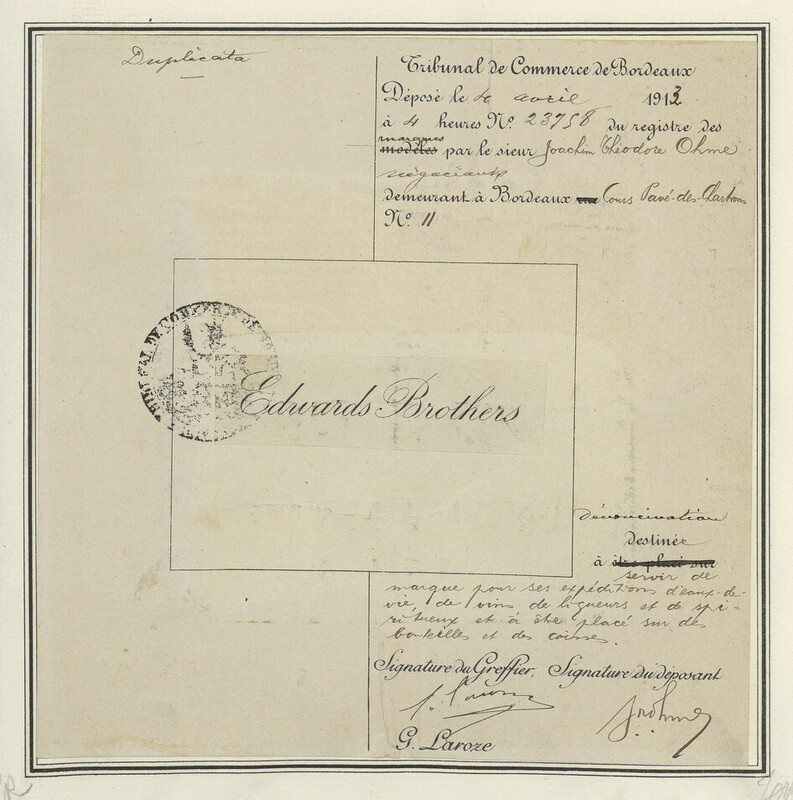 Duplicata
Tribunal de Commerce de Bordeaux
Déposé le 4 avril 1913
à 4 heures No. 23758 du registre des
marques
modèles par le sieur Joachim Théodore Ohme
négociant
demeurant à Bordeaux Cours Pavé-des-Chartrons
No. 11
Edwards Brothers
dénomination
destinée
à être placé sur
servir de
marque pour ses expéditions d'eaux-de-
vie, de vins, de liqueurs et de spi-
ritueux et à être placé sur des
bouteilles et des caisses.
Signature du Greffier, Signature du déposant
G. Laroze